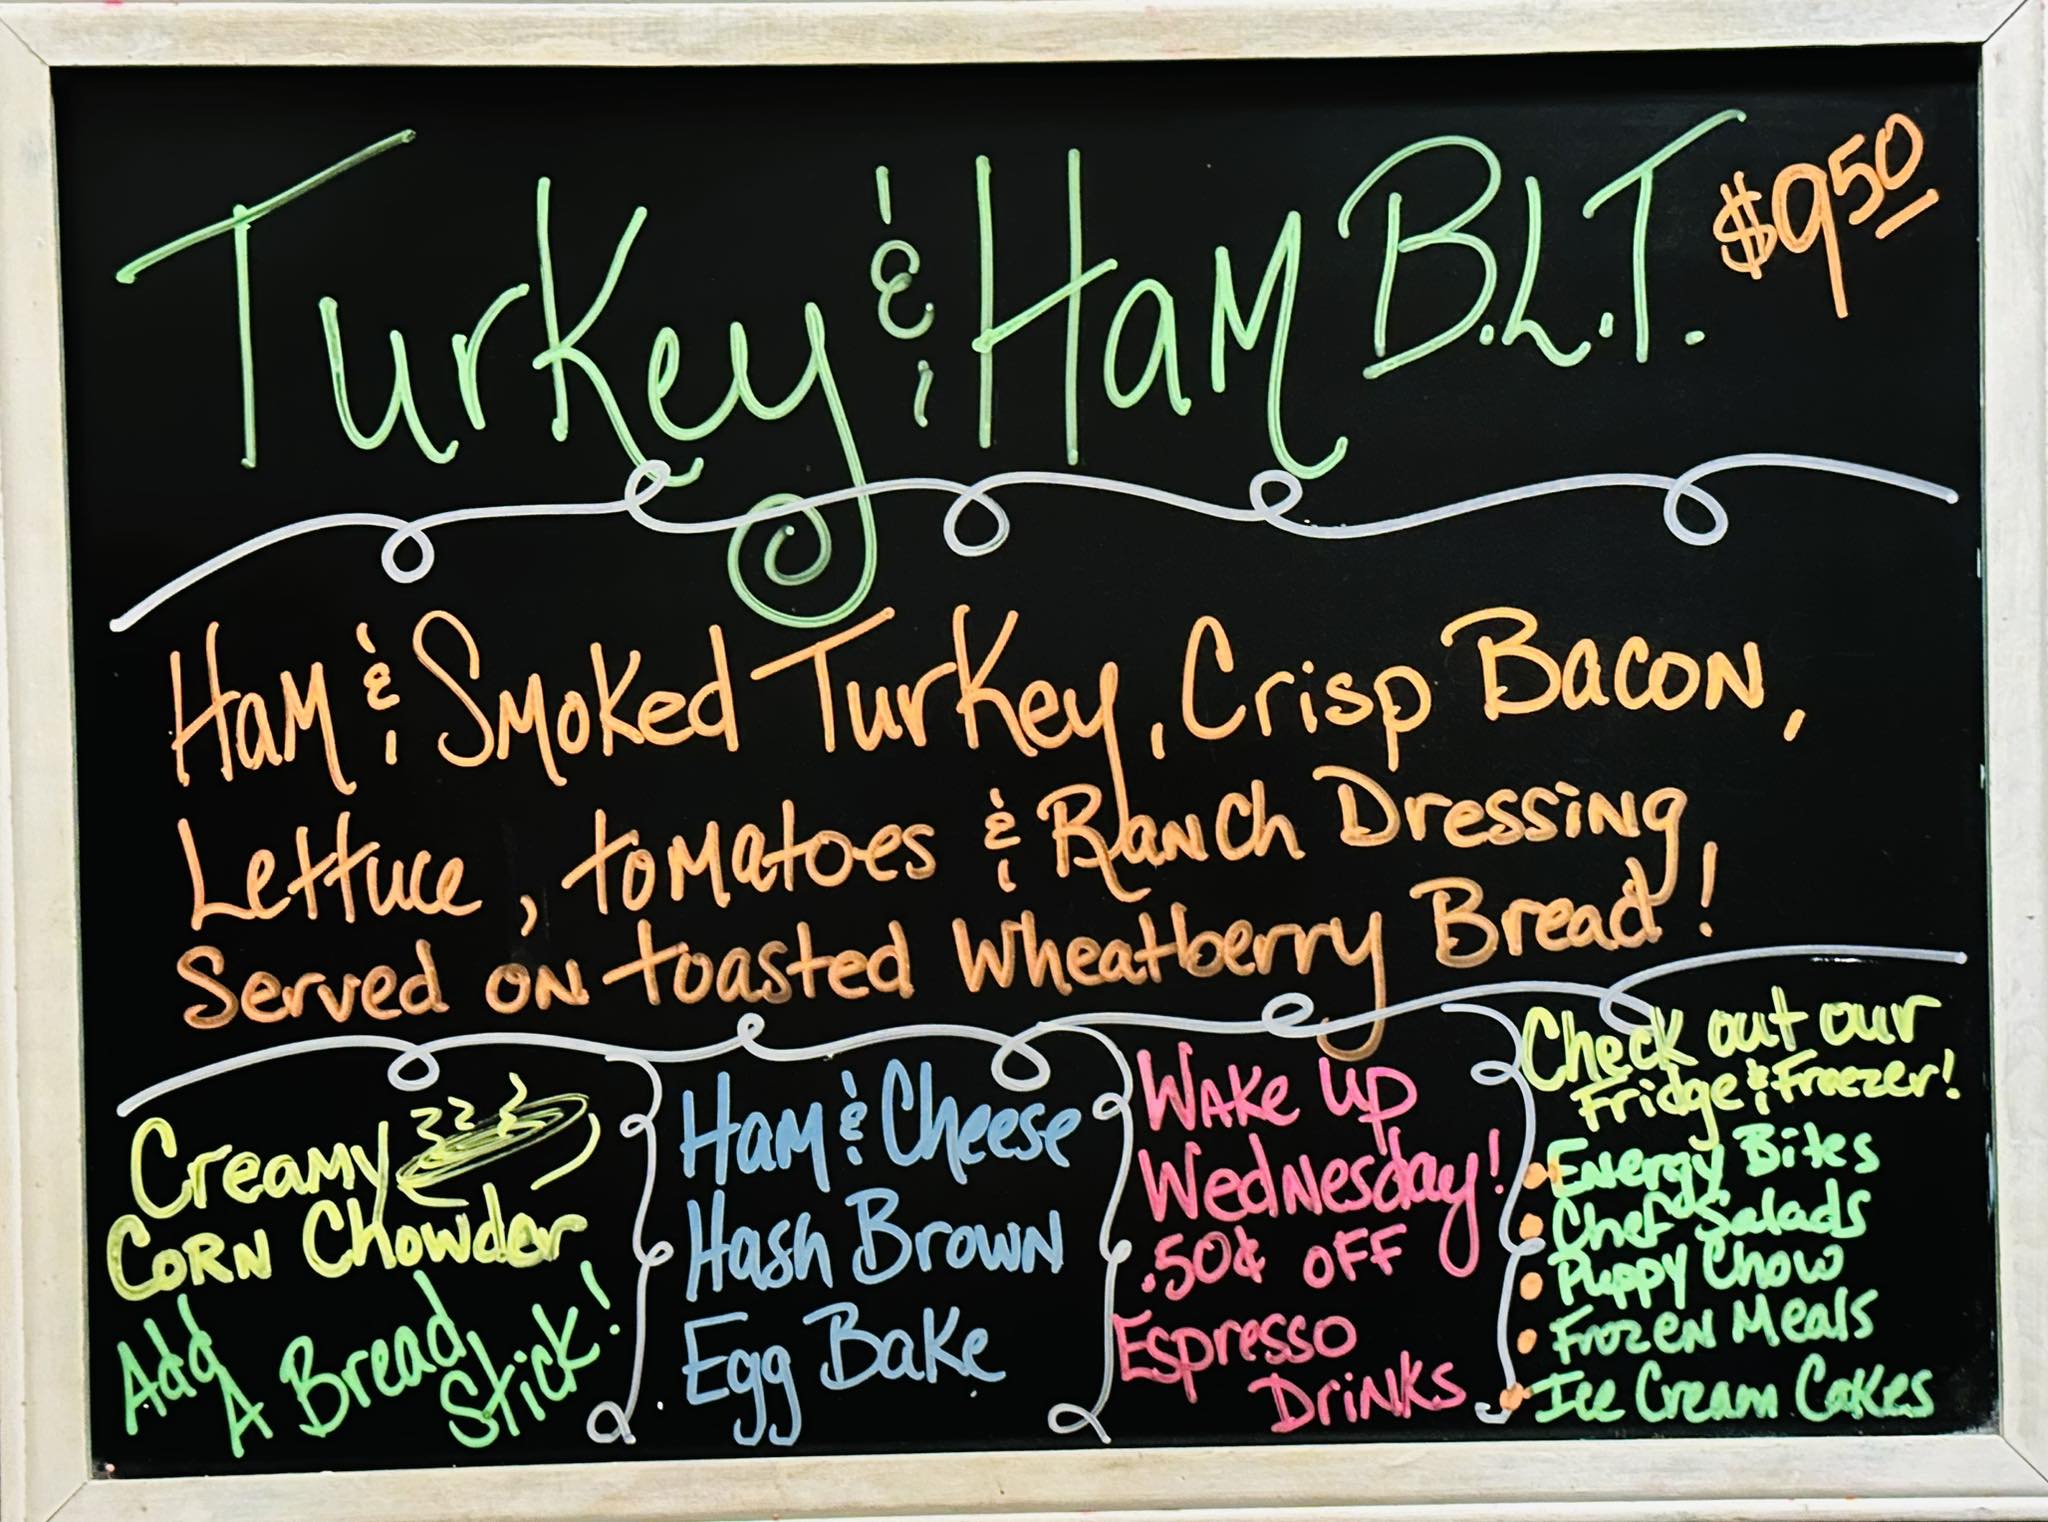 Turkey & Ham B.L.T. $9.50
Ham & Smoked Turkey, Crisp Bacon,
Lettuce, tomatoes & Ranch Dressing
Served on toasted Wheatberry Bread!
Creamy
Corn Chowder
Add A Bread
Stick!
Ham & Cheese
Hash Brown
Egg Bake
Wake up
Wednesday!
.50¢ off
Espresso
Drinks
Check out our
Fridge & Freezer!
• Energy Bites
• Chef Salads
• Puppy Chow
• Frozen Meals
• Ice Cream Cakes